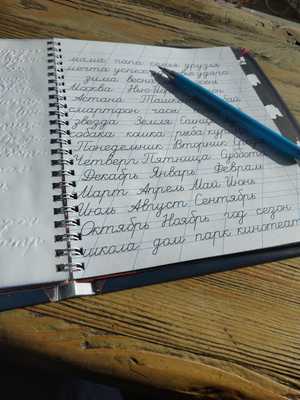 мама папа семья друзья
мечта успех
зима весна
Москва Нью-Йорк
Астана Ташкент
смартфон часы
звезда Земля
собака кошка рыба
Понедельник Вторник
Четверг Пятница Суббота
Декабрь Январь Февраль
Март Апрель Май Июнь
Июль Август Сентябрь
Октябрь Ноябрь год сезон
школа дом парк кинотеатр